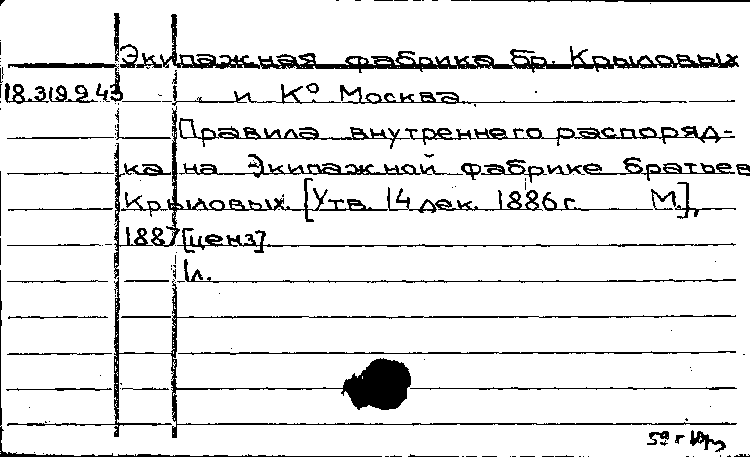 Экипажная фабрика бр. Крыловых
18.319.2.43 и Кº Москва.
Правила внутреннего распоряд-
ка на Экипажной фабрике братьев
Крыловых. [Утв. 14 дек. 1886 г. М.],
1887 [ценз].
1 л.
59 г